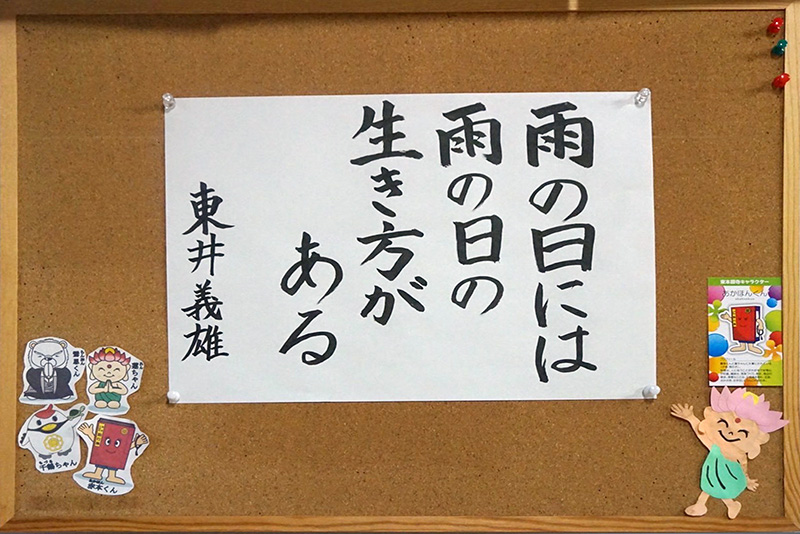 雨の日には
雨の日の
生き方が
ある
東井義雄
蓮ちゃん
千鶴ちゃん
赤本くん
東本願寺キャラクター
あかほんくん